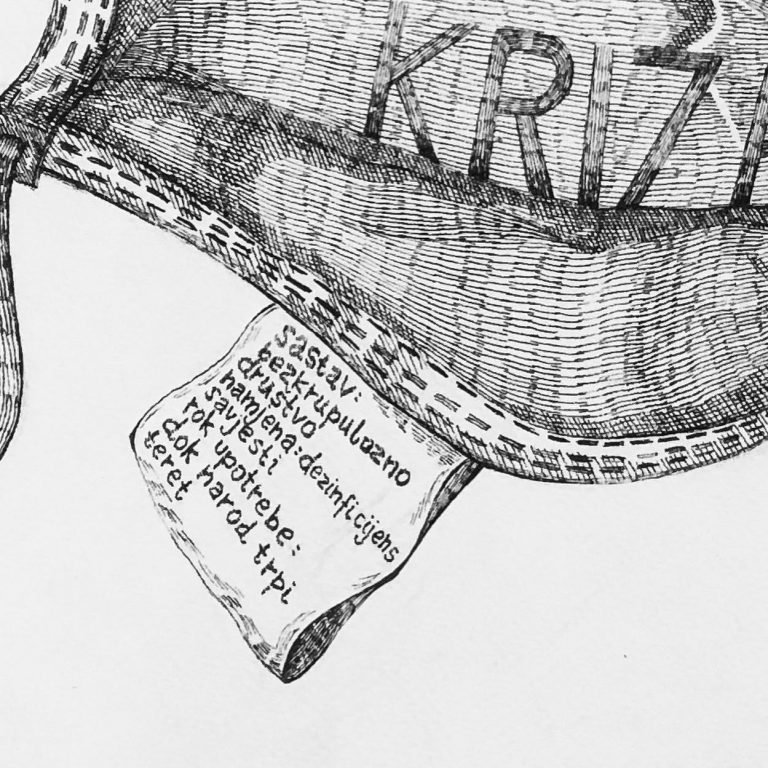 KRIZ
sastav:
bezkrupulozno
društvo
namjena: dezinficijens
savjesti
rok upotrebe:
dok narod trpi
teret